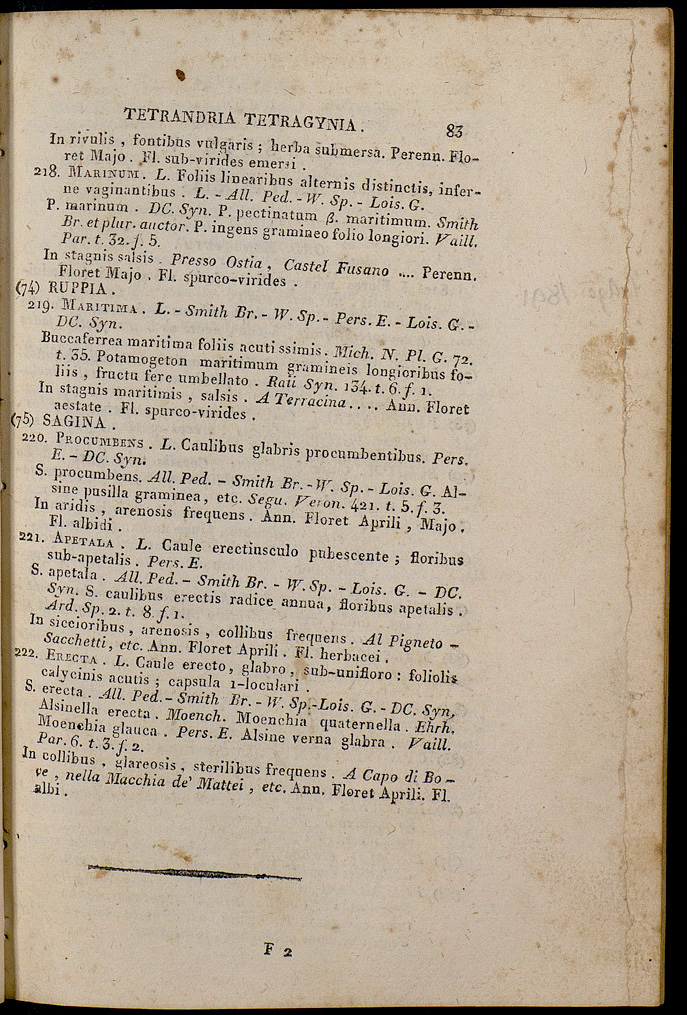 TETRANDRIA TETRAGYNIA. 83
In rivulis , fontibus vulgaris ; herba submersa. Perenn. Flo-
ret Majo . Fl. sub-virides emersi .
218. MARINUM. L. Foliis linearibus alternis distinctis, infer-
ne vaginantibus . L. - All. Ped. - W. Sp. - Lois. G.
P. marinum . DC. Syn. P. pectinatum β. maritimum. Smith
Br. et plur. auctor. P. ingens gramineo folio longiori. Vaill.
Par. t. 32. f. 5.
In stagnis salsis . Presso Ostia , Castel Fusano .... Perenn.
Floret Majo . Fl. spurco-virides .
(74) RUPPIA .
219. MARITIMA . L. - Smith Br. - W. Sp. - Pers. E. - Lois. G. -
DC. Syn.
Buccaferrea maritima foliis acuti ssimis . Mich. N. Pl. G. 72.
t. 35. Potamogeton maritimum gramineis longioribus fo-
liis , fructu fere umbellato . Raii Syn. 134. t. 6. f. 1.
In stagnis maritimis , salsis . A Terracina.... Ann. Floret
aestate . Fl. spurco-virides .
(75) SAGINA .
220. PROCUMBENS . L. Caulibus glabris procumbentibus. Pers.
E. - DC. Syn.
S. procumbens. All. Ped. - Smith Br. - W. Sp. - Lois. G. Al-
sine pusilla graminea, etc. Segu. Veron. 421. t. 5. f. 3.
In aridis , arenosis frequens . Ann. Floret Aprili , Majo .
Fl. albidi .
221. APETALA . L. Caule erectiusculo pubescente ; floribus
sub-apetalis . Pers. E.
S. apetala . All. Ped. - Smith Br. - W. Sp. - Lois. G. - DC.
Syn. S. caulibus erectis radice annua, floribus apetalis .
Ard. Sp. 2. t. 8. f. 1.
In siccioribus , arenosis , collibus frequens . Al Pigneto -
Sacchetti, etc. Ann. Floret Aprili . Fl. herbacei .
222. ERECTA . L. Caule erecto, glabro , sub-unifloro : foliolis
calycinis acutis ; capsula 1-loculari .
S. erecta . All. Ped. - Smith Br. - W. Sp. - Lois. G. - DC. Syn.
Alsinella erecta . Moench. Moenchia quaternella . Ehrh.
Moenchia glauca . Pers. E. Alsine verna glabra . Vaill.
Par. 6. t. 3. f. 2.
In collibus , glareosis , sterilibus frequens . A Capo di Bo -
ve , nella Macchia de' Mattei , etc. Ann. Floret Aprili. Fl.
albi .
F 2